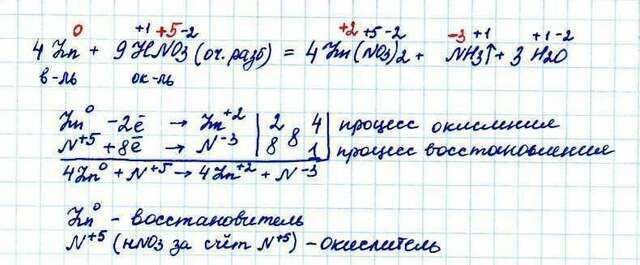 0 +1 +5 -2 +2 +5 -2 -3 +1 +1 -2
4Zn + 9HNO3 (оч. разб) = 4Zn(NO3)2 + NH3↑ + 3H2O
в-ль ок-ль
Zn⁰ -2ē → Zn⁺² | 2 | 8 | 4 | процесс окисления
N⁺⁵ +8ē → N⁻³ | 8 | 1 | процесс восстановления
4Zn⁰ + N⁺⁵ → 4Zn⁺² + N⁻³
Zn⁰ - восстановитель
N⁺⁵ (HNO3 за счёт N⁺⁵) - окислитель